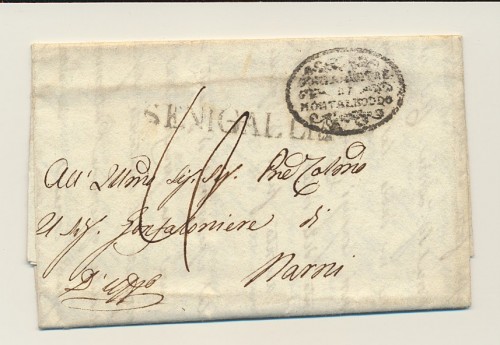 GONFALONIERE
DI
MONTALBODDO
SENIGALLIA
All' Illmo Sig. Sig. Pne Colmo
Il Sig. Gonfaloniere di
Narni
D'Uffo